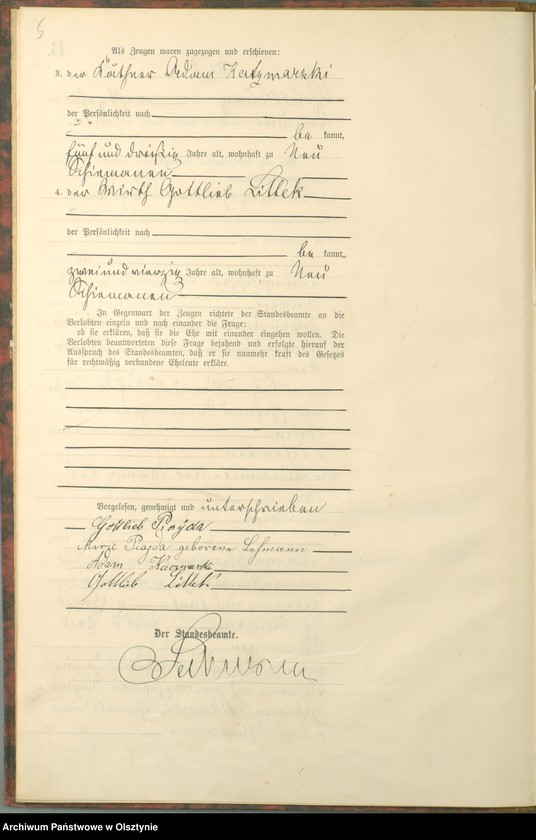 5
Als Zeugen waren zugezogen und erschienen:
3. der Käthner Adam Katzmarzki
der Persönlichkeit nach
be kannt,
fünf und dreißig Jahre alt, wohnhaft zu Neu
Schiemanen
4. der Wirth Gottlieb Littek
der Persönlichkeit nach
be kannt,
zwei und vierzig Jahre alt, wohnhaft zu Neu
Schiemanen
In Gegenwart der Zeugen richtete der Standesbeamte an die
Verlobten einzeln und nach einander die Frage:
ob sie erklären, daß sie die Ehe mit einander eingehen wollen. Die
Verlobten beantworteten diese Frage bejahend und erfolgte hierauf der
Ausspruch des Standesbeamten, daß er sie nunmehr kraft des Gesetzes
für rechtmäßig verbundene Eheleute erkläre.
Vorgelesen, genehmigt und unterschrieben
Gottlieb
geborene Lehmann
Adam
Gottlieb Littek
Der Standesbeamte.
Archiwum Państwowe w Olsztynie